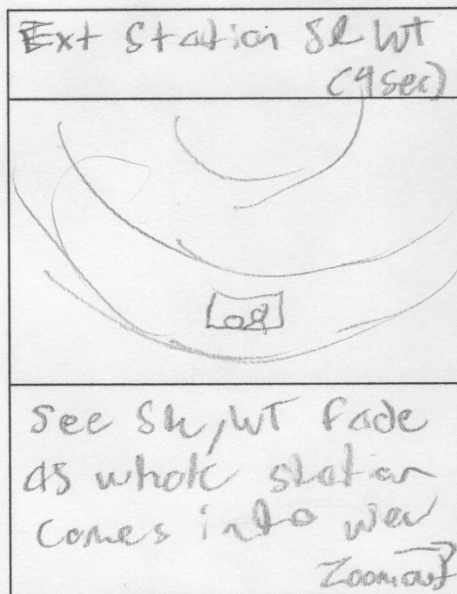 Ext Station SR WT
(4sec)
See SR, WT fade
as whole station
comes into view
Zoom out